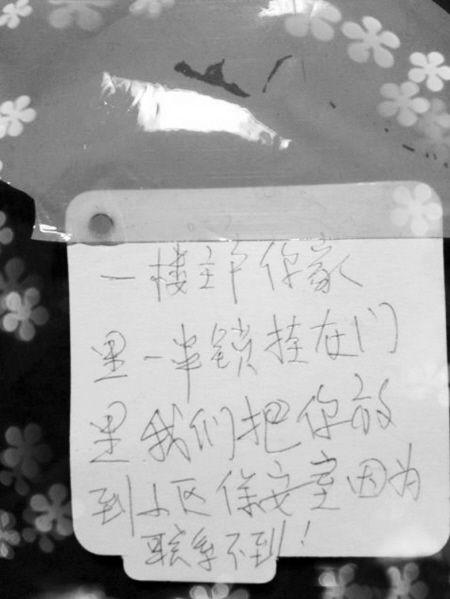 一楼主户你家
里一半锁挂在门
里我们把你放
到小区保安室因为
联系不到!